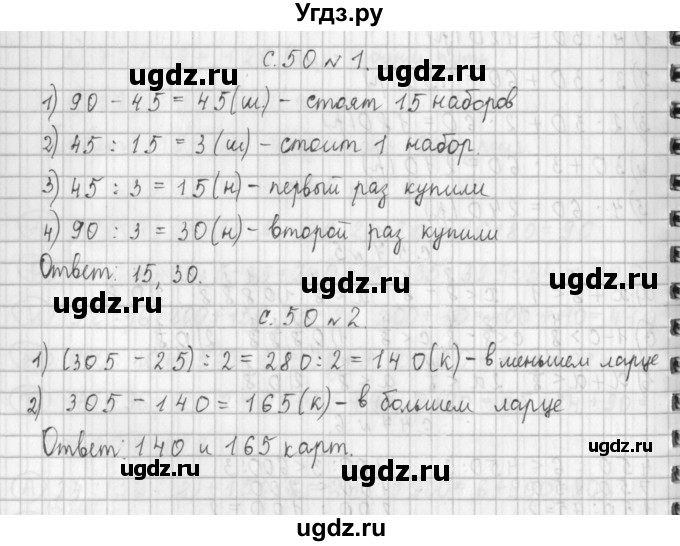 Угдз.ру
с. 50 № 1.
ugdz.ru ugdz.ru
1) 90 - 45 = 45 (ш) - стоят 15 наборов
2) 45 : 15 = 3 (ш) - стоит 1 набор.
ugdz.ru ugdz.ru
3) 45 : 3 = 15 (н) - первый раз купили
4) 90 : 3 = 30 (н) - второй раз купили
ugdz.ru ugdz.ru
Ответ: 15, 30.
ugdz.ru ugdz.ru
с. 50 № 2.
1) (305 - 25) : 2 = 280 : 2 = 140 (к) - в меньшем ларце
ugdz.ru ugdz.ru
2) 305 - 140 = 165 (к) - в большем ларце
ugdz.ru
Ответ: 140 и 165 карт.
ugdz.ru ugdz.ru
ugdz.ru